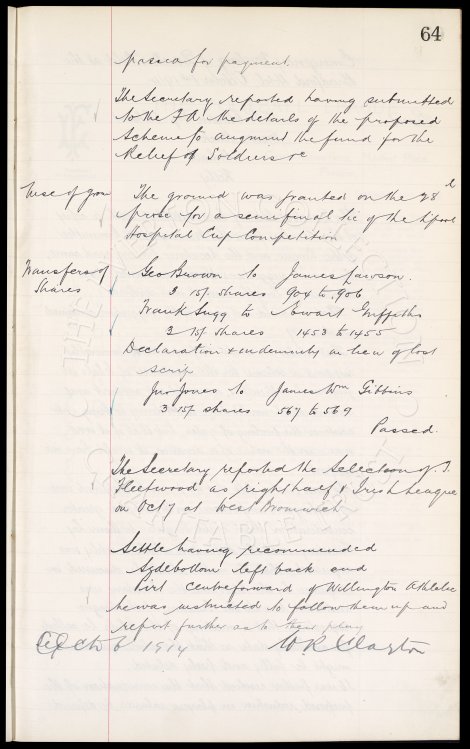 64
passed for payment
The Secretary reported having submitted
to the FA the details of the proposed
Scheme to augment the fund for the
Relief of Soldiers &c
Use of Grou The ground was granted on the 28 d
prox for a semifinal tie of the Lpool
Hospital Cup Competition
Transfers of Shares Geo Brown to James Lawson.
3 1st shares 904 to 906
Frank Sugg to Ewart Griffiths
3 1st shares 1453 to 1455
Declaration & indemnity in lieu of lost
scrip
Jno Jones to James Wm Gibbins
3 1st shares 567 to 569
Passed.
The Secretary reported the selection of T.
Fleetwood as right half v Irish League
on Oct 7 at West Bromwich
Settle having recommended
Sydebottom left back and
Pirt centreforward of Wellington Athletic
he was instructed to follow them up and
report further as to their play
Octr 6 1914 W R Clayton